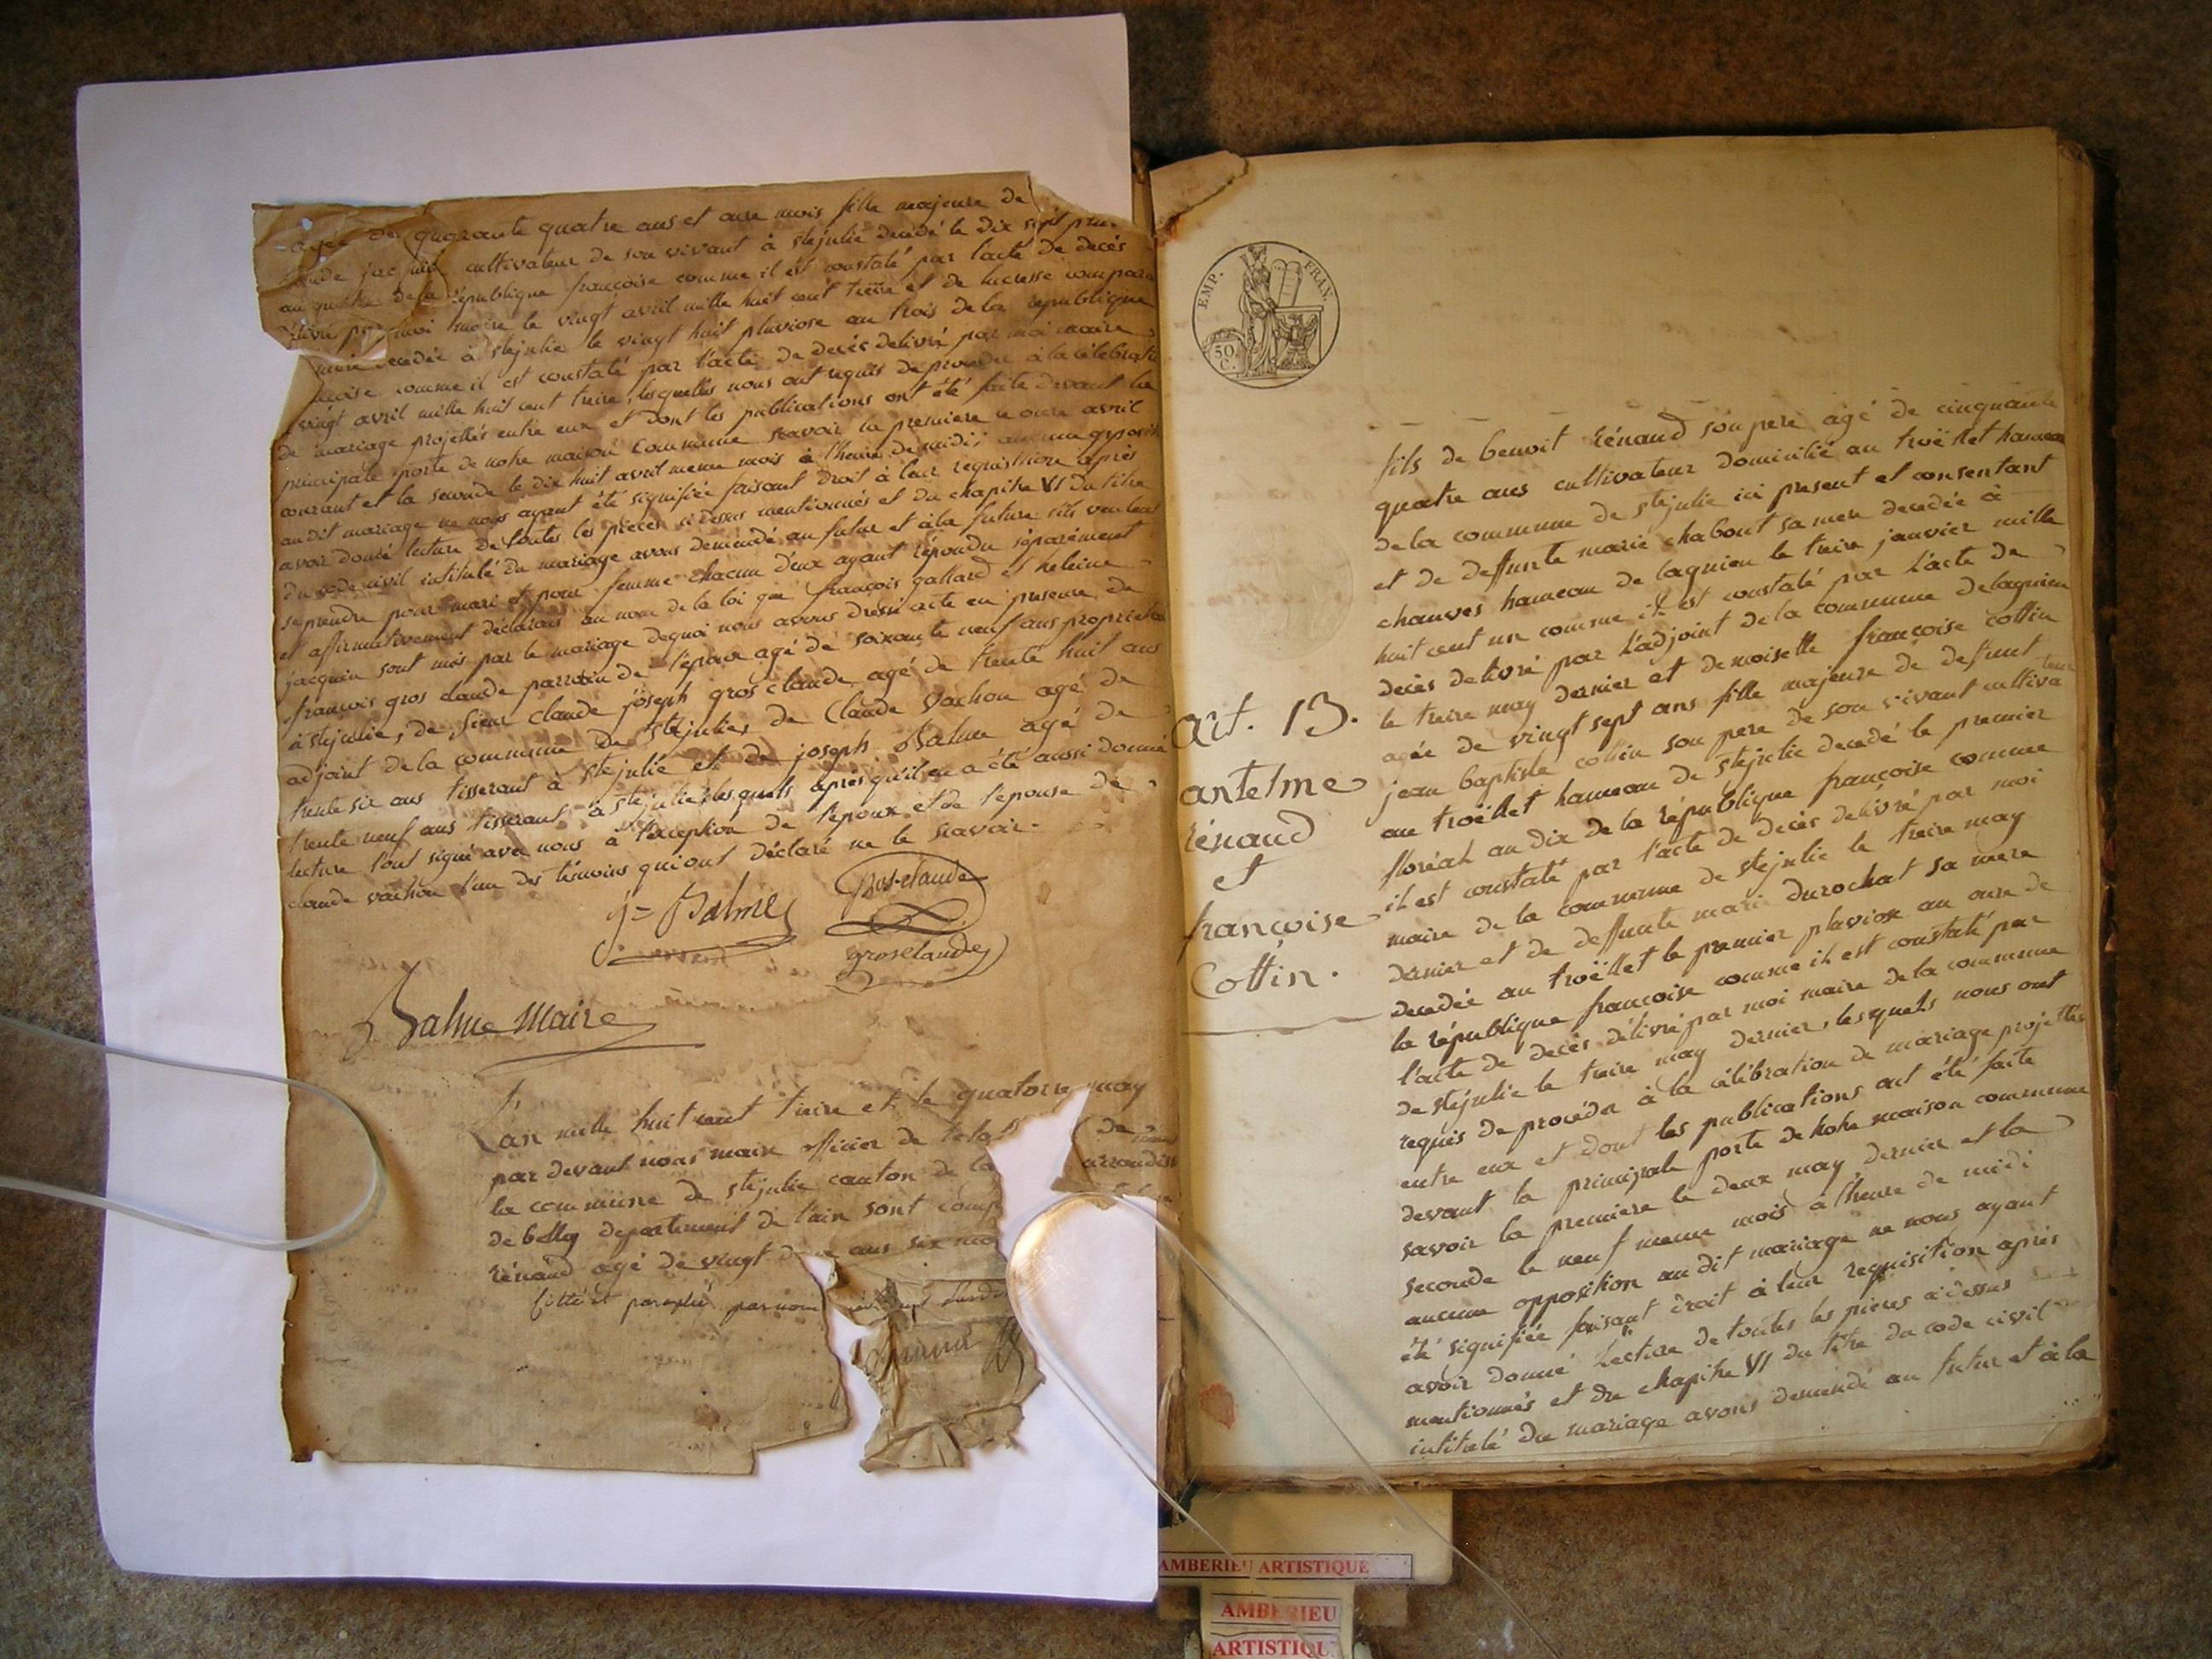 agée de quarante quatre ans et onze mois fille majeure de
claude jacquin cultivateur de son vivant à stejulie decedé le dix sept prai
an quatre de la république françoise comme il est constaté par l'acte de decès
délivré par moi maire le vingt avril mille huit cent treize et de lucresse
mere decedée à stejulie le vingt huit pluviose an trois de la république
françoise comme il est constaté par l'acte de decès delivré par moi maire
vingt avril mille huit cent treize, lesquelles nous ont requis de proceder à la célébratio
de mariage projettés entre eux et dont les publications ont été faite devant la
principale porte de notre maison commune scavoir la premiere le onze avril
courant et la seconde le dix huit avril meme mois à l'heure de midi; aucune opposit
au dit mariage ne nous ayant été signifiée faisant droit à leur requisition après
avoir donné lecture de toutes les pieces ci dessus mentionnés et du chapitre VI du titre
du code civil intitulé du mariage avons demandé au futur et à la future s'ils veulent
se prendre pour mari et pour femme chacun d'eux ayant répondu séparément
et affirmativement déclarons au nom de la loi que françois gallard et heleine
jacquin sont unis par le mariage dequoi nous avons dressé acte en presence de
françois gros claude parrain de l'époux agé de soixante neuf ans proprietai
à stejulie, de sieur claude joseph gros claude agé de trente huit ans
adjoint de la commune de stejulie, de Claude Vachon agé de
trente six ans tisserant à stejulie et de joseph Balme agé de
trente neuf ans tisserant à stejulie; lesquels après qu'il en a été aussi donné
lecture l'ont signé avec nous à l'exception de l'époux et de l'épouse de
claude vachon l'un des témoins qui ont déclaré ne le scavoir.
j= Balme
Gros-claude
grosclaude
Balme maire
L'an mille huit cent treize et le quatorze may
par devant nous maire officier de l'etat de
la commune de stejulie canton de la arrondiss
de belley departement de l'ain sont comp
rénaud agé de vingt ans six mo
EMP. FRAN.
50 C.
art. 13.
antelme
rénaud
et
françoise
Cottin.
fils de benoit rénaud son pere agé de cinquante
quatre ans cultivateur domicilié au troëllet hameau
de la commune de stejulie ici present et consentant
et de deffunte marie chabout sa mere decedée à
chanves hameau de lagnieu le treize janvier mille
huit cent un comme il est constaté par l'acte de
decès delivré par l'adjoint de la commune de lagnieu
le treize may dernier et demoiselle françoise cottin
agée de vingt sept ans fille majeure de defunt
jean baptiste cottin son pere de son vivant cultiva teur
au troëllet hameau de stejulie decedé le premier
floréal an dix de la république françoise comme
il est constaté par l'acte de decès delivré par moi
maire de la commune de stejulie le treize may
dernier et de deffunte marie durochat sa mere
decedée au troëllet le premier pluviose an onze de
la république françoise comme il est constaté par
l'acte de decès délivré par moi maire de la commune
de stejulie le treize may dernier, lesquels nous ont
requis de proceder à la célébration de mariage projettés
entre eux et dont les publications ont été faite
devant la principale porte de notre maison commune
savoir la premiere le deux may dernier et la
seconde le neuf meme mois à l'heure de midi
aucune opposition au dit mariage ne nous ayant
été signifiée faisant droit à leur requisition après
avoir donné lecture de toutes les pieces ci dessus
mentionnés et du chapitre VI du titre du code civil
intitulé du mariage avons demandé au futur et à la
AMBERIEU ARTISTIQUE
AMBERIEU
ARTISTIQU